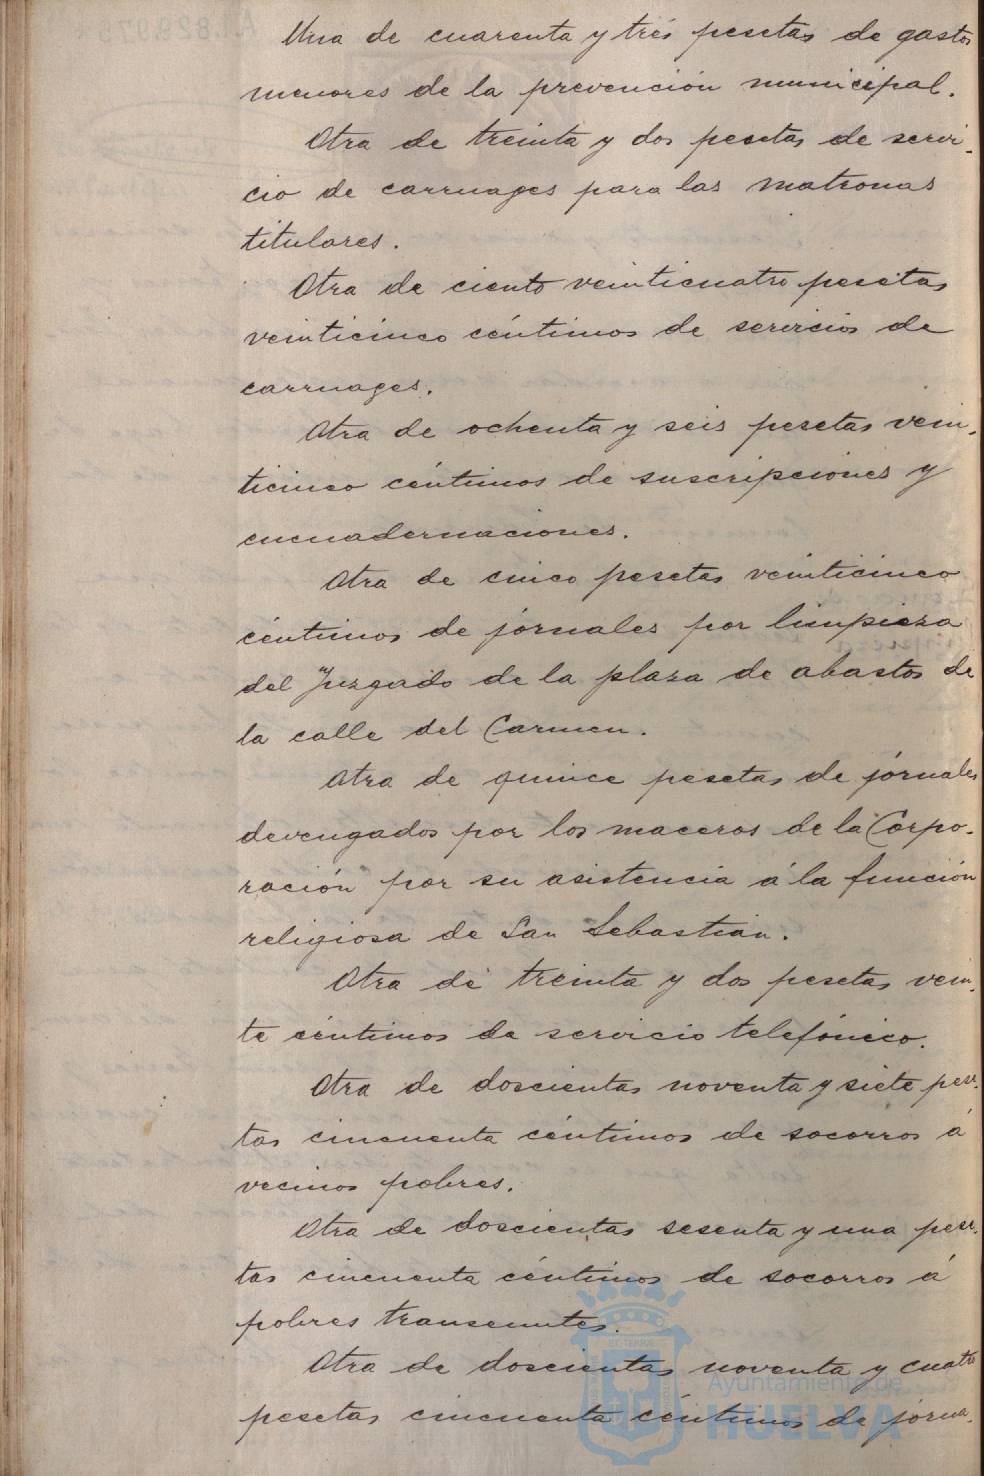 Una de cuarenta y tres pesetas de gastos
menores de la prevención municipal.
Otra de treinta y dos pesetas de servi-
cio de carruages para las matronas
titulares.
Otra de ciento veinticuatro pesetas
veinticinco céntimos de servicios de
carruages.
Otra de ochenta y seis pesetas vein-
ticinco céntimos de suscripciones y
encuadernaciones.
Otra de cinco pesetas veinticinco
céntimos de jornales por limpieza
del Juzgado de la plaza de abastos de
la calle del Carmen.
Otra de quince pesetas de jornales
devengados por los maceros de la Corpo-
ración por su asistencia á la función
religiosa de San Sebastián.
Otra de treinta y dos pesetas vein-
te céntimos de servicio telefónico.
Otra de doscientas noventa y siete pese-
tas cincuenta céntimos de socorros á
vecinos pobres.
Otra de doscientas sesenta y una pese-
tas cincuenta céntimos de socorros á
pobres transeuntes.
Otra de doscientas noventa y cuatro
pesetas cincuenta céntimos de jorna-
Ayuntamiento de
HUELVA